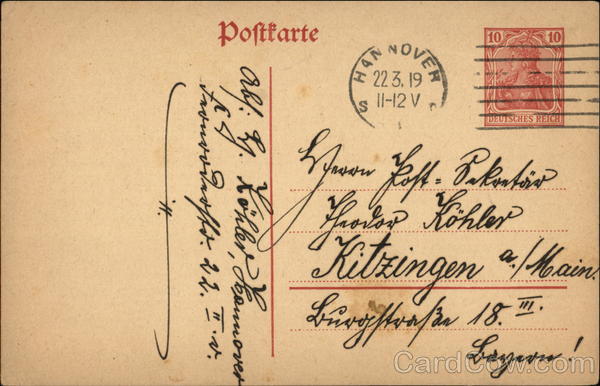 Postkarte
10 10
DEUTSCHES REICH
HANNOVER
22.3.19
11-12 V
S
Abs. Köhler, Hannover
22. II v.
Herrn Post-Sekretär
Theodor Köhler
Kitzingen a./Main.
Burgstraße 18. III.
Bayern!
CardCow.com